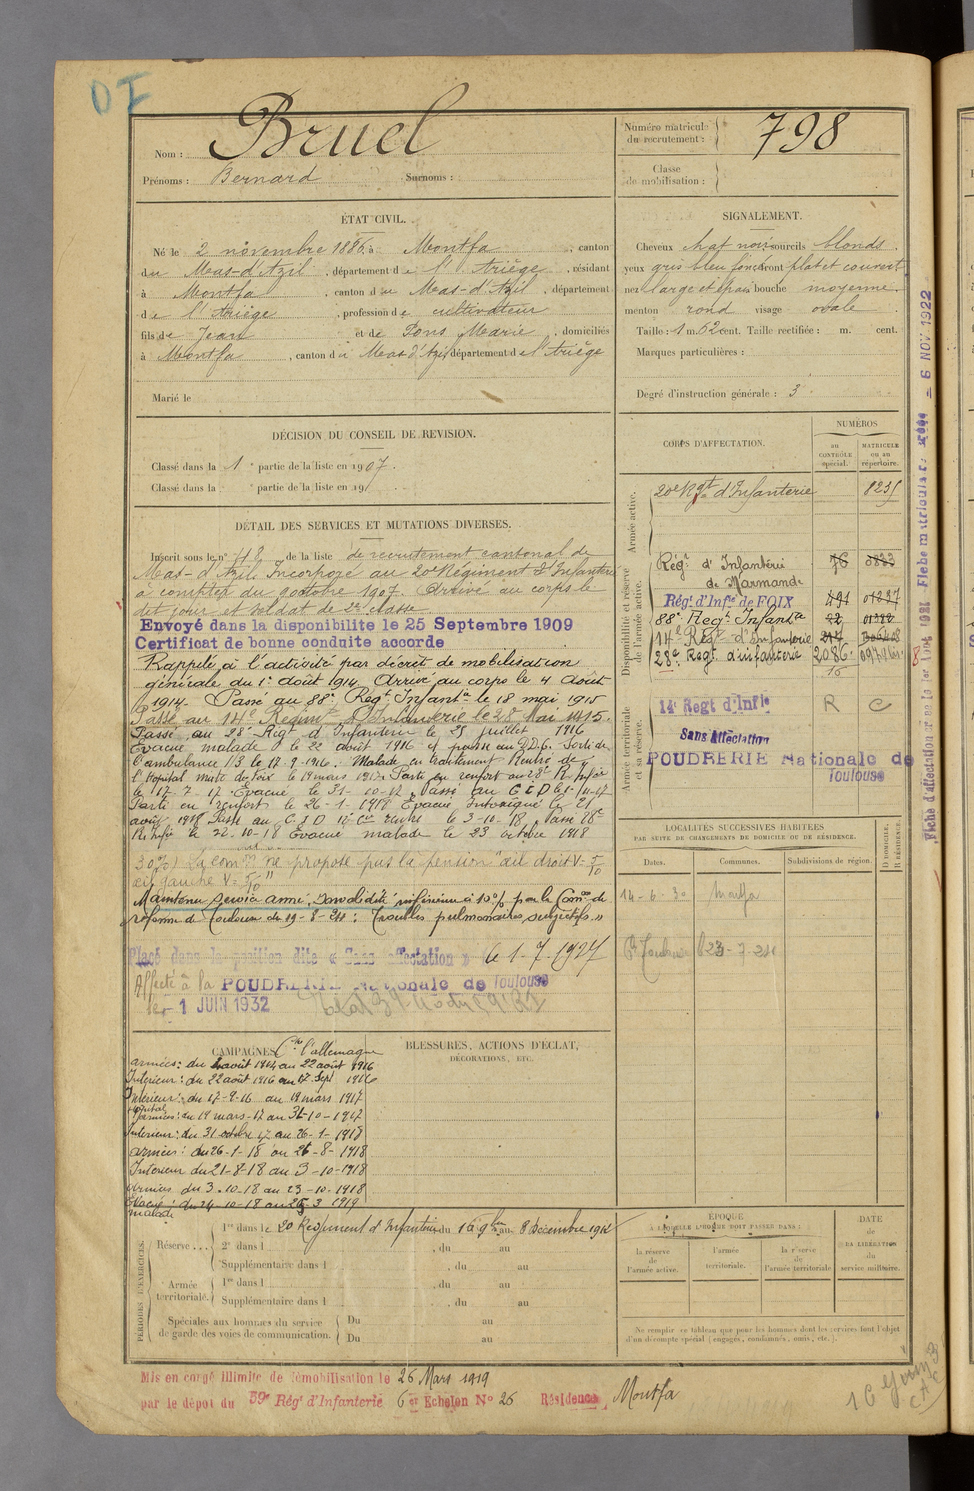 OI
Nom : Bruel
Prénoms : Bernard Surnoms :
Numéro matricule du recrutement : 798
Classe de mobilisation :
ÉTAT CIVIL.
Né le 2 novembre 1886 à Montfa, canton
du Mas-d'Azil, département de l'Ariège, résidant
à Montfa, canton du Mas-d'Azil, département
de l'Ariège, profession de cultivateur
fils de Jean et de Pons Marie, domiciliés
à Montfa, canton du Mas d'Azil, département de l'Ariège
Marié le
SIGNALEMENT.
Cheveux chat noir sourcils blonds
yeux gris bleu foncé front plat et couvert
nez large et épais bouche moyenne
menton rond visage ovale
Taille : 1 m. 62 cent. Taille rectifiée : m. cent.
Marques particulières :
Degré d'instruction générale : 3
DÉCISION DU CONSEIL DE REVISION.
Classé dans la 1e partie de la liste en 1907.
Classé dans la e partie de la liste en 19
DÉTAIL DES SERVICES ET MUTATIONS DIVERSES.
Inscrit sous le n° 48 de la liste de recrutement cantonal de
Mas-d'Azil. Incorporé au 20e Régiment d'Infanterie
à compter du octobre 1907. Arrivé au corps le
dit jour et soldat de 2e classe
Envoyé dans la disponibilite le 25 Septembre 1909
Certificat de bonne conduite accorde
Rappelé à l'activité par décret de mobilisation
générale du 1er Août 1914. Arrivé au corps le 4 Août
1914. Passé au 88e Regt Infante le 18 mai 1915
Passé au 14e Régimt d'Infanterie le 28 Mai 1915.
Passé au 28e Regt d'Infanterie le 25 juillet 1916
Evacué malade le 22 août 1916 et passé au D.D. Sorti de
l'ambulance 1/3 le 17-9-1916. Malade en traitement Rentré de
l'Hopital mixte de Foix le 19 mars 1917. Parti en renfort au 28e R
le 17-7-17 Evacué le 31-10-17. Passé au C I D le 1-11-17
Parti en renfort le 26-1-1918 Evacué Intoxiqué le 21
août 1918 Passé au C I D Cie rentré le 3-10-18. Passé 28e
le 22-10-18 Evacué malade le 23 octobre 1918
30%) La comon ne propose pas la pension "œil droit V = 5/10
œil gauche V = 5/10"
Maintenu service armé, invalidité inférieure à 10% par la Comon de
réforme de Toulouse du 19-8-24 : Troubles pulmonaires subjectifs "
Placé dans la position dite « Sans affectation » le 1-7-1927
Affecté à la POUDRERIE Nationale de Toulouse
le 1 JUIN 1932
CORPS D'AFFECTATION.
NUMÉROS
au CONTRÔLE spécial.
MATRICULE ou au répertoire.
Armée active.
20e Rgt d'Infanterie 8235
Disponibilité et réserve de l'armée active.
Régt d'Infanterie de Marmande 76 0883
Régt d'Infie de FOIX 491 01297
88e Regt Infante 22 01322
14e Régt d'Infanterie 217
28e Regt d'infanterie 2086
16
Armée territoriale et sa réserve.
14e Regt d'Infie R C
Sans Affectation
POUDRERIE Nationale de Toulouse
6 NOV 1922
LOCALITÉS SUCCESSIVES HABITÉES
PAR SUITE DE CHANGEMENTS DE DOMICILE OU DE RÉSIDENCE.
Dates. Communes. Subdivisions de région. D DOMICILE. R RÉSIDENCE.
14-6-30 Montfa
23-7-24
CAMPAGNES Cre l'allemagne
armées : du 4 août 1914 au 22 août 1916
Intérieur : du 22 août 1916 au 17 Sept 1916
Intérieur : du 17-9-16 au 19 mars 1917
hopital
armées : du 19 mars-17 au 31-10-1917
Intérieur : du 31 octobre 17 au 26-1-1918
armées : du 26-1-18 au 21-8-1918
Intérieur du 21-8-18 au 3-10-1918
armées du 3-10-18 au 23-10-1918
Evacué : du 24-10-18 au 25-3 1919
malade
BLESSURES, ACTIONS D'ÉCLAT,
DÉCORATIONS, ETC.
PÉRIODES D'EXERCICES.
Réserve... 1re dans le 20 Régiment d'Infanterie du 16 9bre au 8 Décembre 1912
2e dans l , du au
Supplémentaire dans l , du au
Armée territoriale. 1re dans l , du au
Supplémentaire dans l , du au
Spéciales aux hommes du service de garde des voies de communication. Du au
Du au
ÉPOQUE
À LAQUELLE L'HOMME DOIT PASSER DANS :
la réserve de l'armée active.
l'armée territoriale.
la réserve de l'armée territoriale
DATE DE LA LIBÉRATION du service militaire.
Ne remplir ce tableau que pour les hommes dont les services font l'objet
d'un décompte spécial (engagés, condamnés, omis, etc.).
Mis en congé illimite de démobilisation le 26 Mars 1919
par le dépot du 59e Rég d'Infanterie 6e Echelon No 26 Résidence Montfa